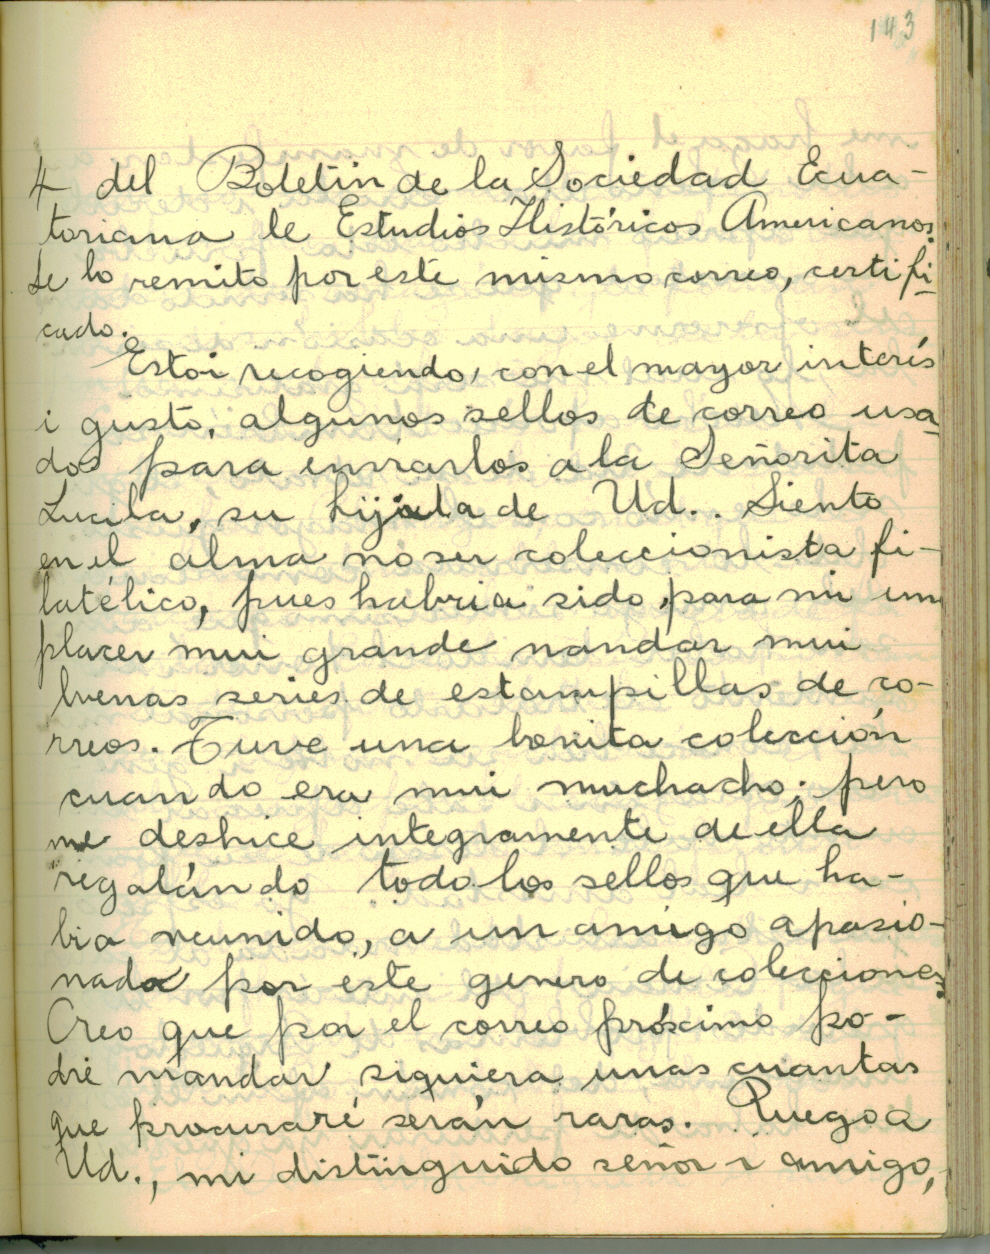 143
4 del Boletín de la Sociedad Ecua-
toriana le Estudios Históricos Americanos.
Se lo remito por este mismo correo, certifi-
cado.
Estoi recogiendo, con el mayor interés
i gusto, algunos sellos de correo usa-
dos para enviarlos a la Señorita
Lucila, su hijita de Ud.. Siento
en el alma no ser coleccionista fi-
latélico, pues habria sido, para mi un
placer mui grande mandar mui
buenas series de estampillas de co-
rreos. Tuve una bonita colección
cuando era mui muchacho; pero
me deshice integramente de ella
regalándo todo los sellos que ha-
bia reunido, a un amigo apasio-
nado por este genero de colecciones.
Creo que por el correo próximo po-
dré mandar siquiera unas cuantas
que procuraré serán raras. Ruego a
Ud., mi distinguido señor i amigo,